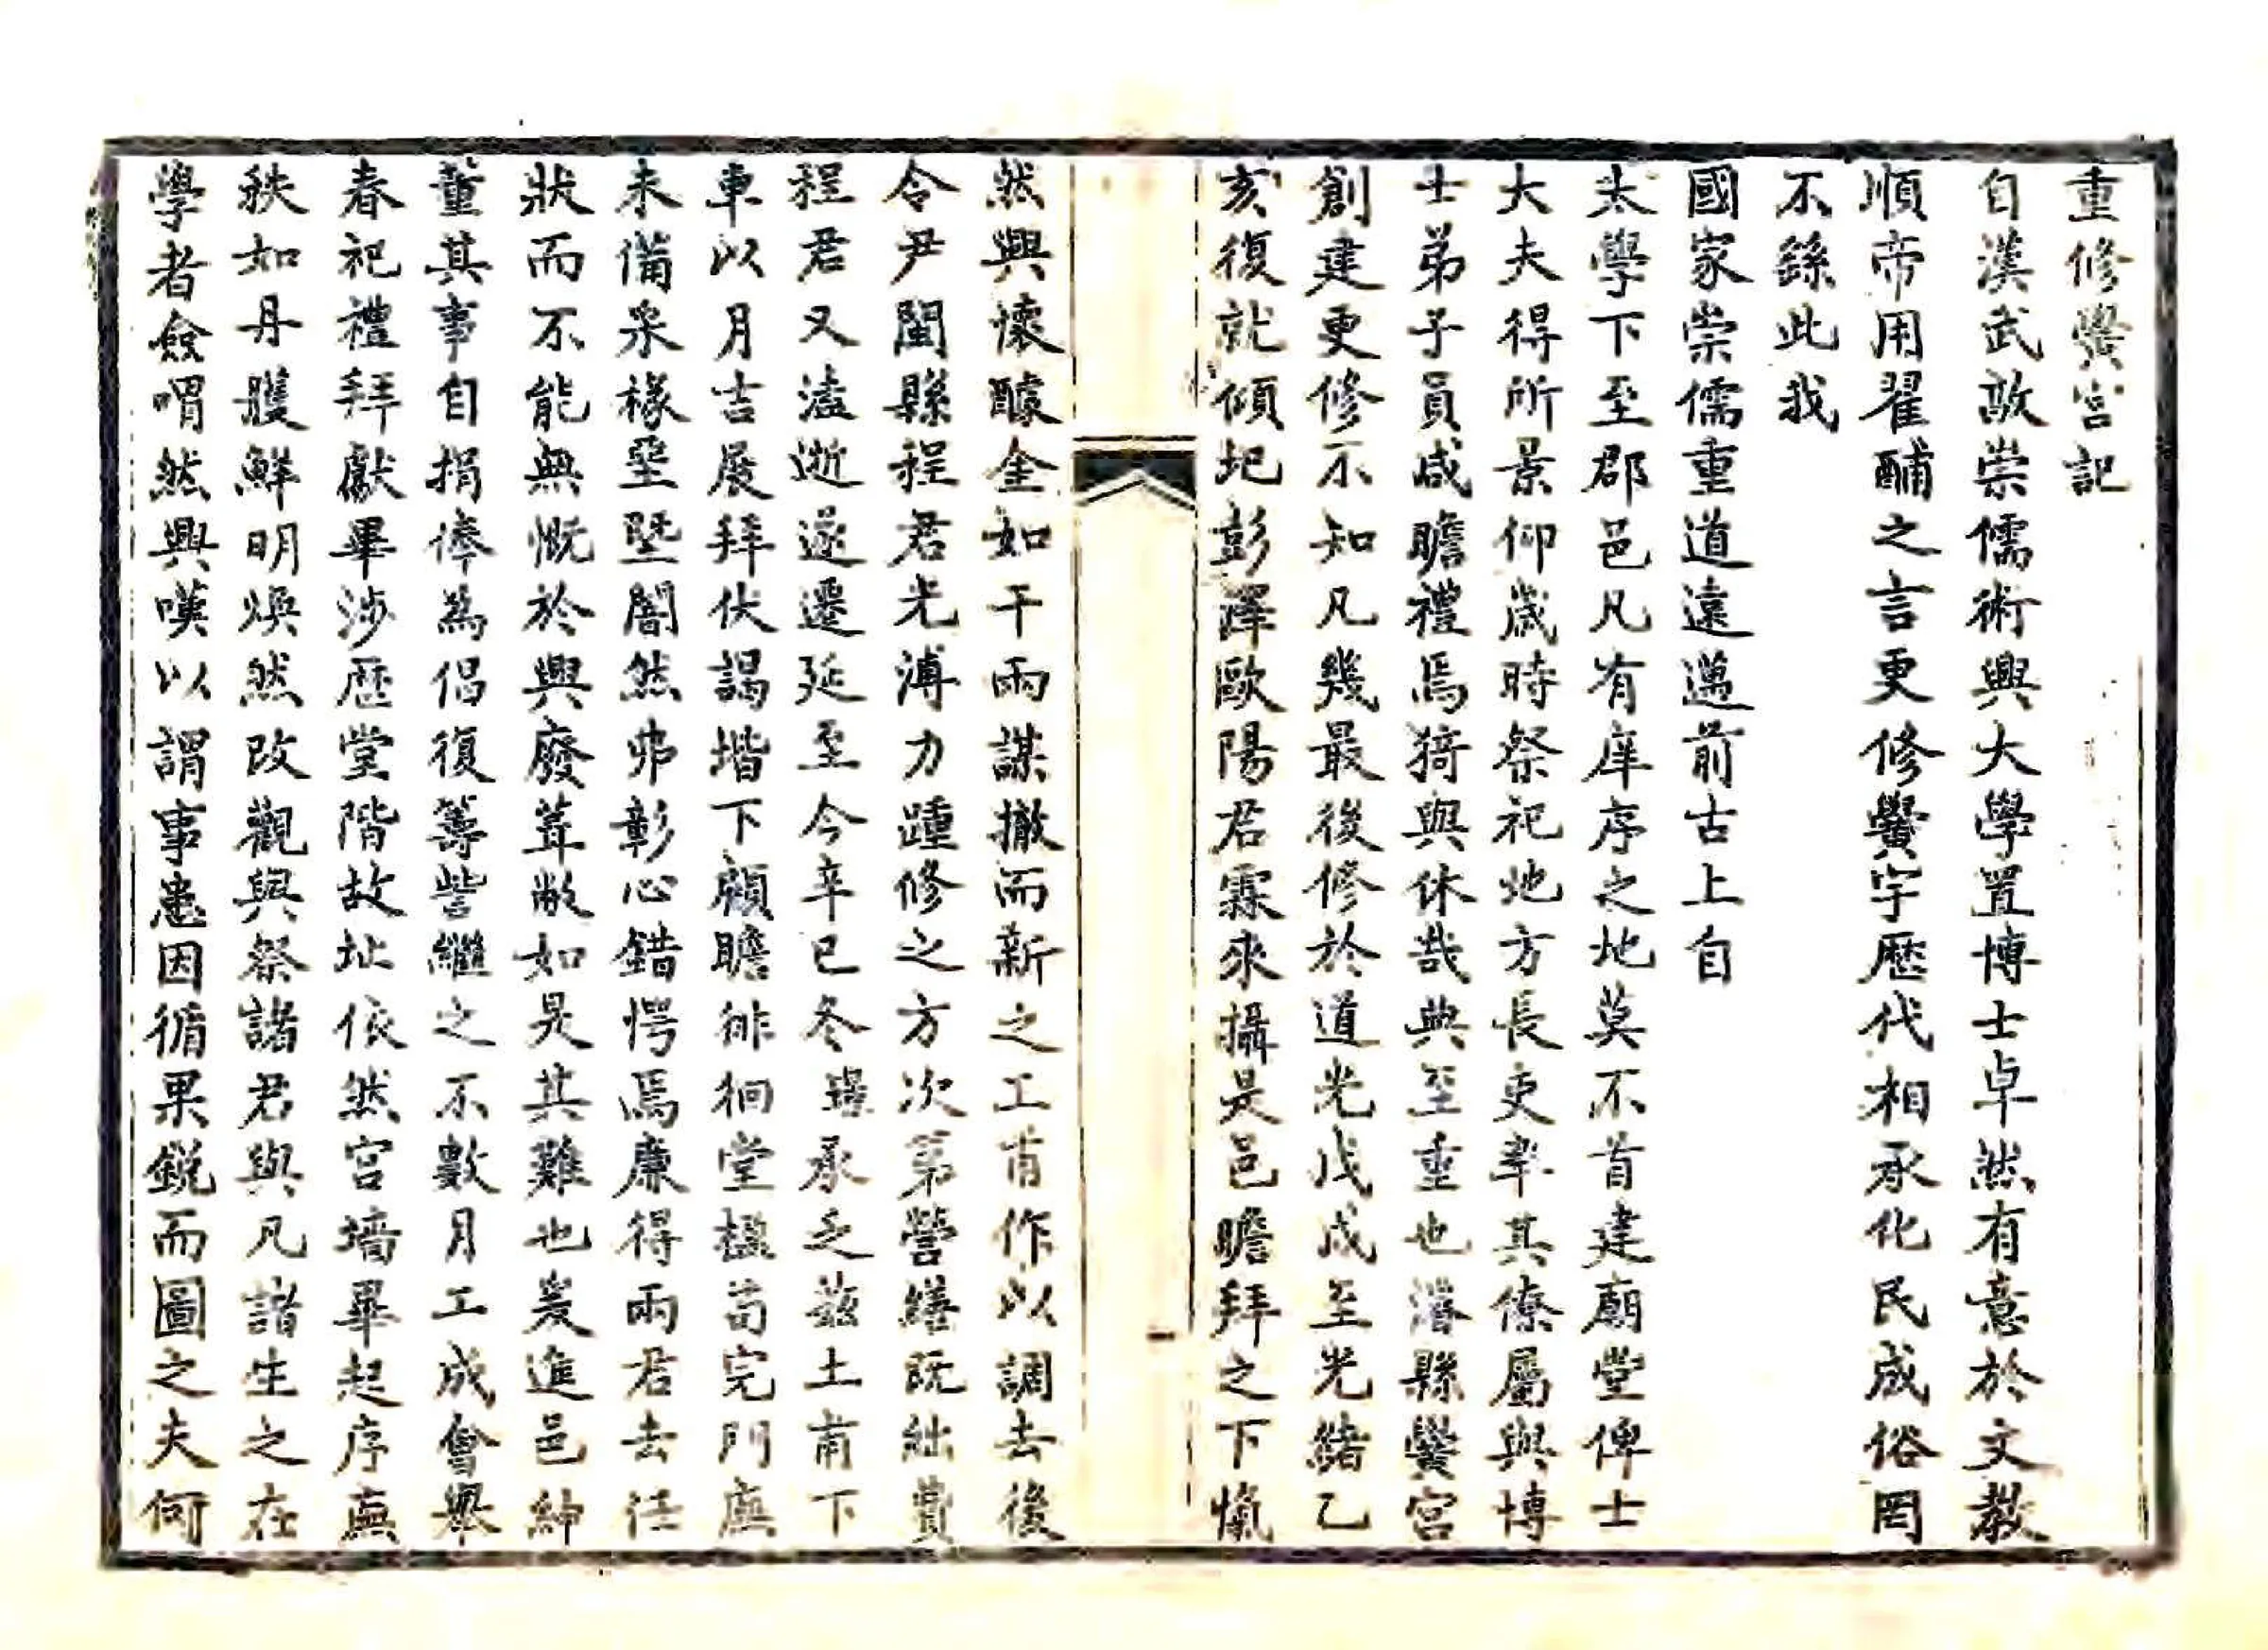 重修黌宮記
自漢武敢崇儒術興大學置博士卓然有意於文教
順帝用翟酺之言更修黌宇歷代相承化民成俗罔
不繇此我
國家崇儒重道遠邁前古上自
太學下至郡邑凡有庠序之地莫不首建廟堂俾士
大夫得所景仰歲時祭祀地方長吏率其僚屬與博
士弟子員咸瞻禮焉猗與休哉典至重也濬縣黌宮
創建更修不知凡幾最後修於道光戊戌至光緒乙
亥復就傾圮彭澤歐陽君霖來攝是邑瞻拜之下愾
然興懷醵金如干兩謀撤而新之工甫作以調去後
令尹閩縣程君光溥力踵修之方次第營繕既絀費
程君又溘逝遂遷延至今辛巳冬璟承乏茲土甫下
車以月吉展拜伏謁堦下顧瞻徘徊堂楹苟完門廡
未備桼椽堊墍闇然弗彰心錯愕焉廉得兩君去任
狀而不能無慨於興廢葺敝如是其難也爰進邑紳
董其事自捐俸為倡復籌訾繼之不數月工成會舉
春祀禮拜獻畢涉歷堂階故址依然宮墻畢起序廡
秩如丹雘鮮明煥然改觀與祭諸君與凡諸生之在
學者僉喟然興嘆以謂事患因循果銳而圖之夫何